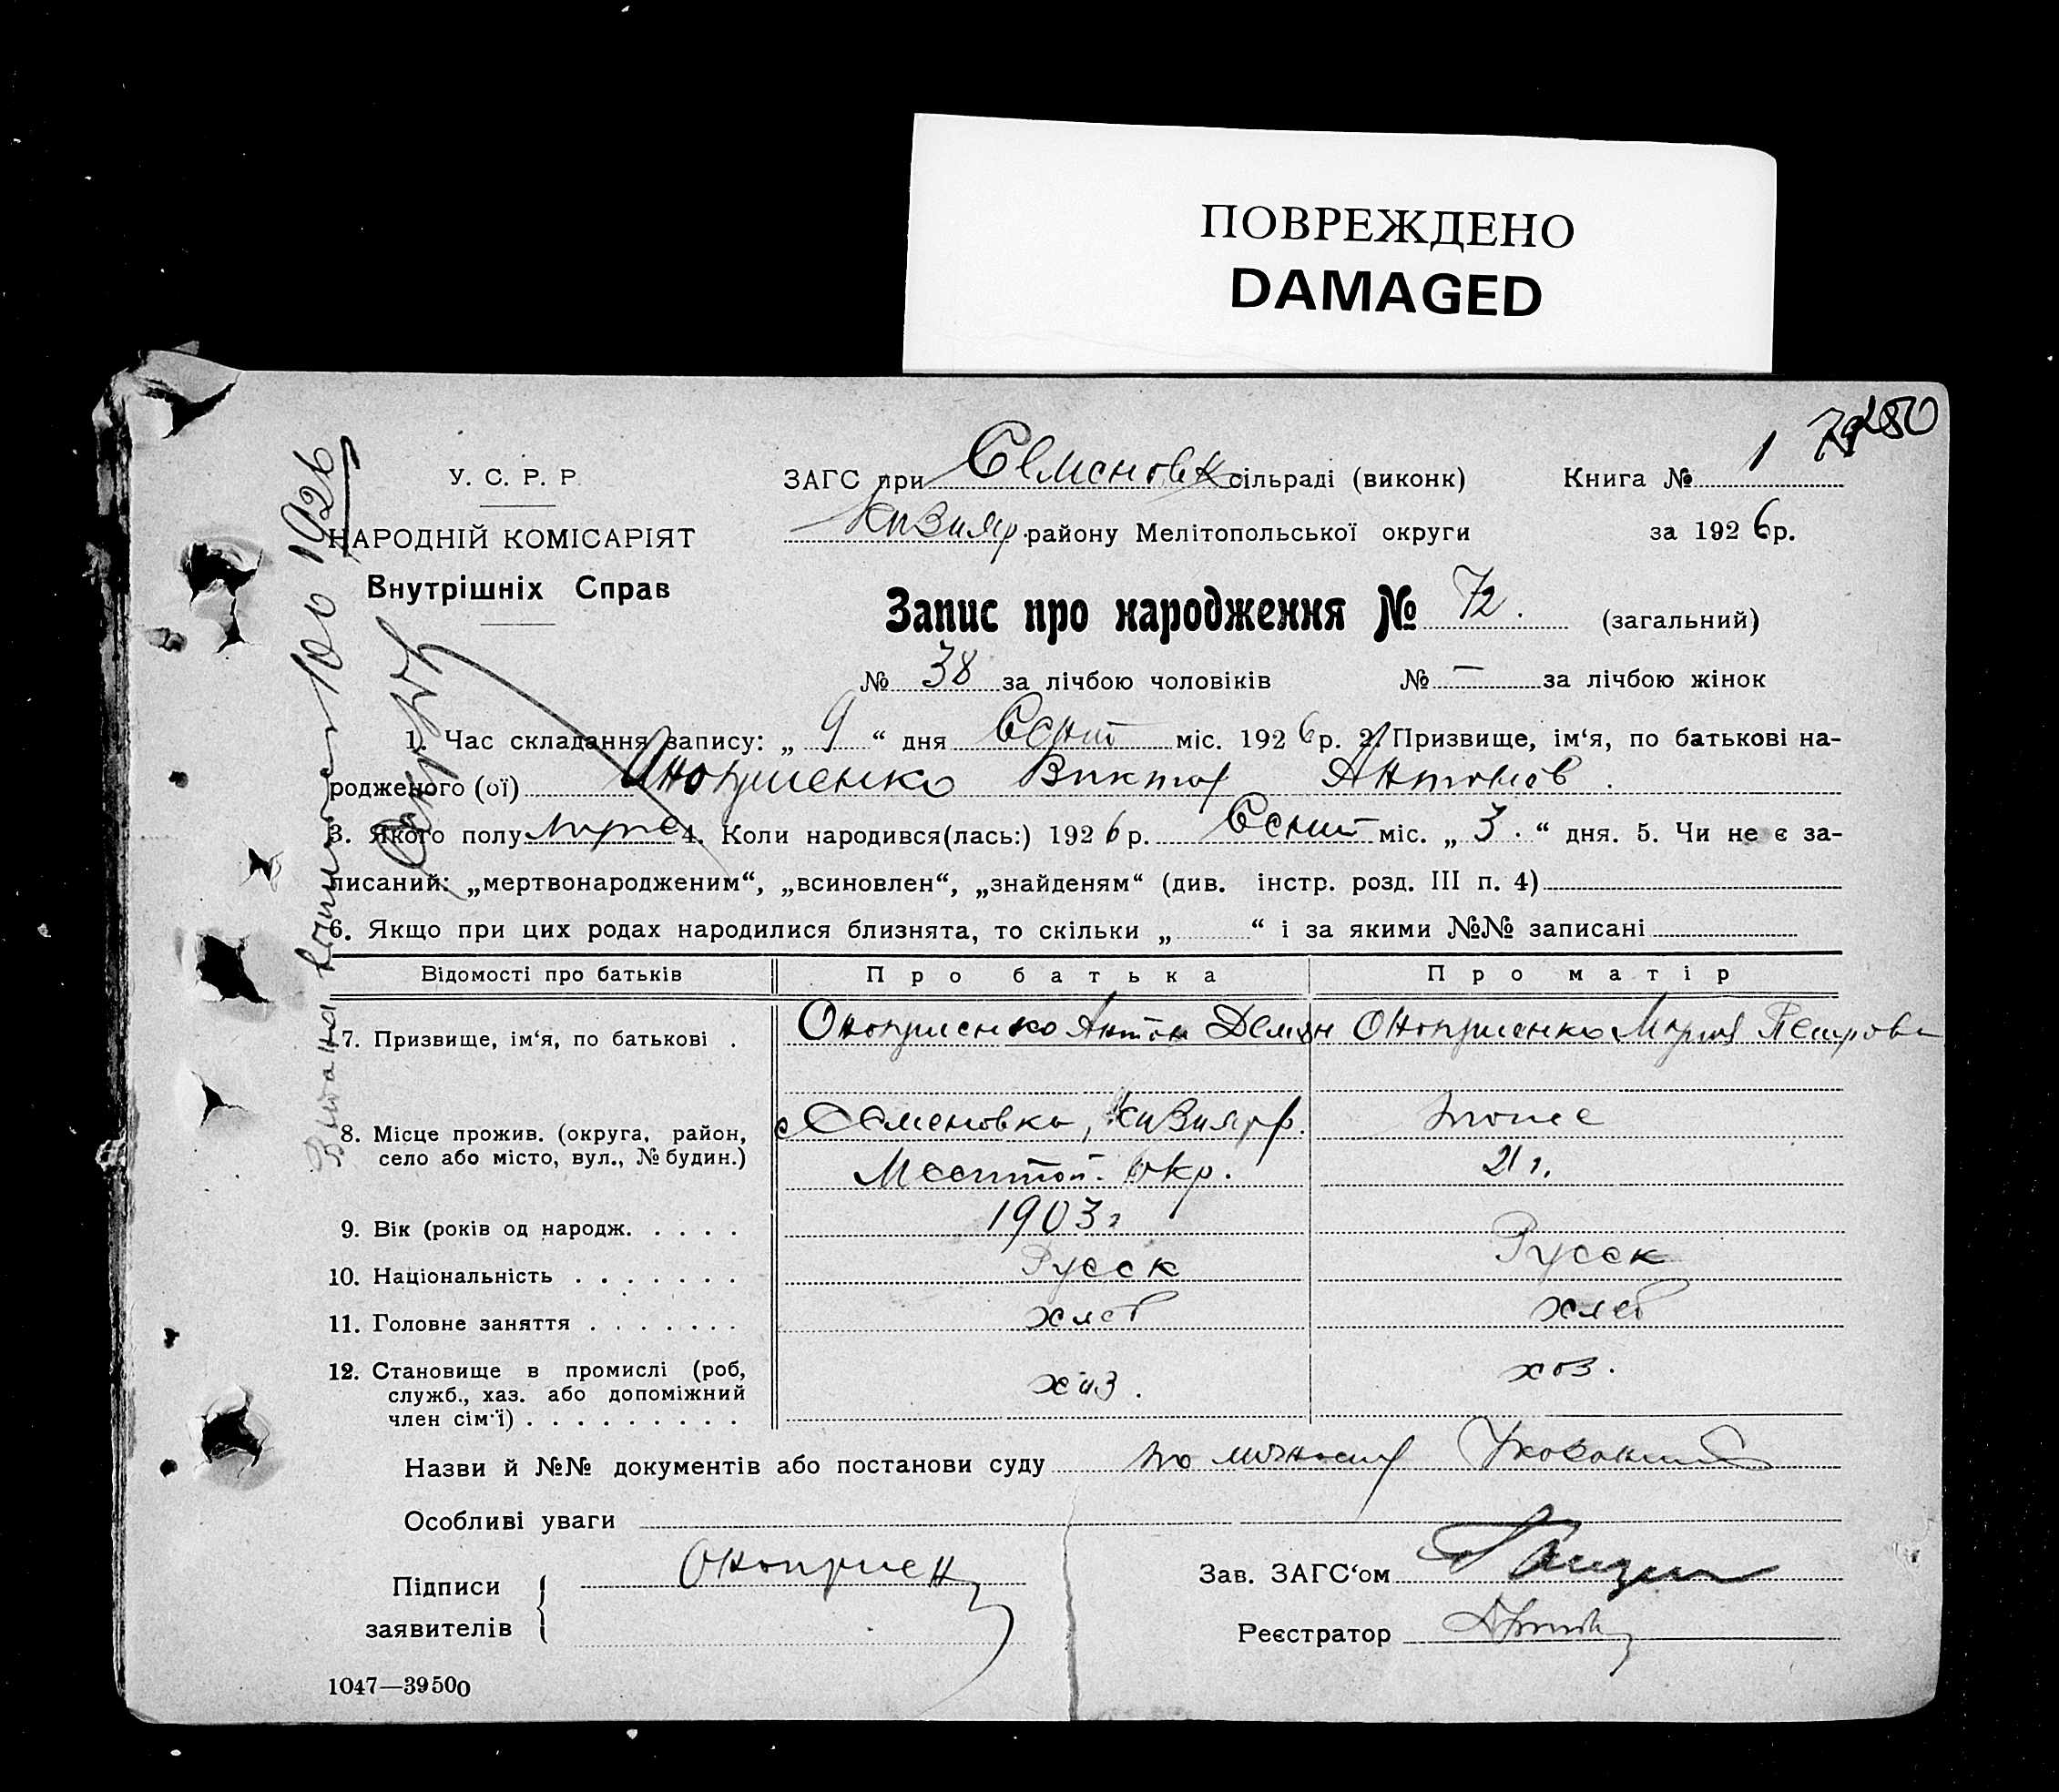 ПОВРЕЖДЕНО
DAMAGED
У. С. Р. Р.
НАРОДНІЙ КОМІСАРІЯТ
Внутрішніх Справ
ЗАГС при Семеновк сільраді (виконк)
Кизияр. району Мелітопольської округи
Книга № 1
за 1926 р.
Запис про народження № 72. (загальний)
№ 38 за лічбою чоловіків № — за лічбою жінок
1. Час складання запису: „ 9 “ дня Сент міс. 1926 р. 2. Призвище, ім‘я, по батькові на-
родженого (ої) Оноприенко Виктор Антонов.
3. Якого полу муж 4. Коли народився(лась:) 1926 р. Сент міс. „ 3. “ дня. 5. Чи не є за-
писаний: „мертвонародженим“, „всиновлен“, „знайденям“ (див. інстр. розд. III п. 4)
6. Якщо при цих родах народилися близнята, то скільки „ “ і за якими №№ записані
Відомості про батьків Про батька Про матір
7. Призвище, ім‘я, по батькові . Оноприенко Антон Демян Оноприенко Мария Петровн
8. Місце прожив. (округа, район, село або місто, вул., № будин.) с Семеновка, Кизияр р. тоже
Мелитоп. окр. 21 г.
9. Вік (років од народж. . . . . 1903 г
10. Національність . . . . . . . Русск Русск
11. Головне заняття . . . . . . . хлеб хлеб
12. Становище в промислі (роб, служб., хаз. або допоміжний член сім‘ї) . . . . . . . . . хоз. хоз.
Назви й №№ документів або постанови суду по личност
Особливі уваги
Підписи заявителів Оноприен
Зав. ЗАГС‘ом
Реєстратор
1047—39500
1926